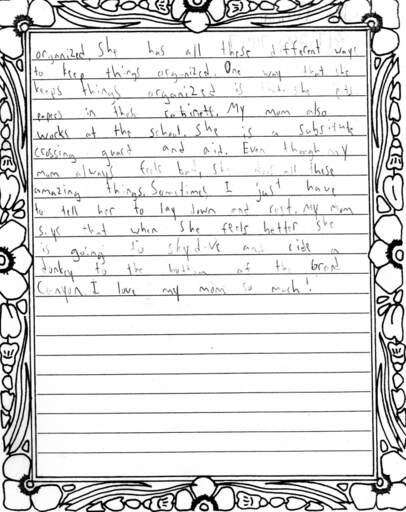 organized. She has all these different ways
to keep things organized. One way that she
keeps things organized is she puts
papers in their cabinets. My mom also
works at the school. She is a substitute
crossing guard and aid. Even though my
mom always feels bad, she does all these
amazing things. Sometimes I just have
to tell her to lay down and rest. My mom
says that when she feels better she
is going to skydive and ride a
donkey to the bottom of the Grand
Canyon. I love my mom so much!